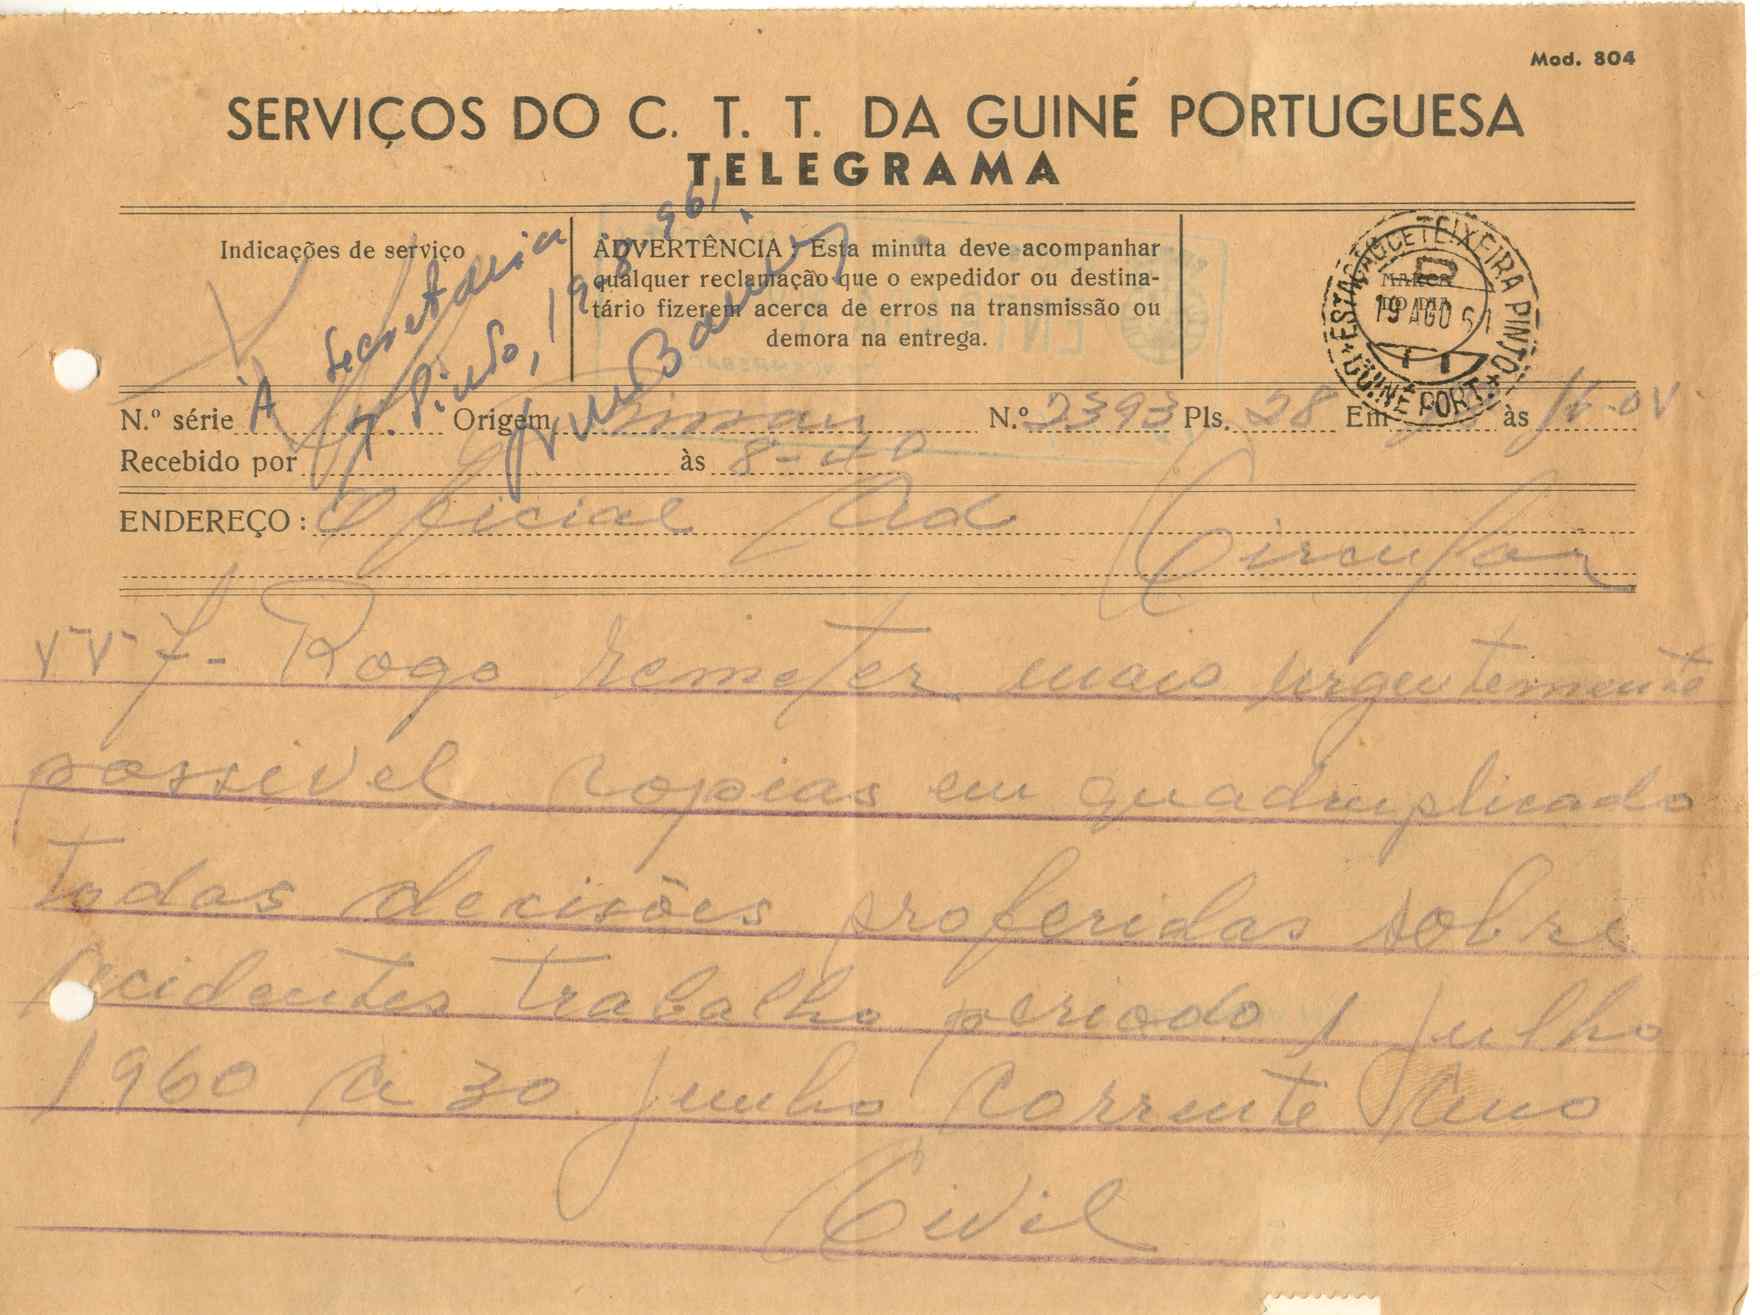 Mod. 804
SERVIÇOS DO C. T. T. DA GUINÉ PORTUGUESA
TELEGRAMA
Indicações de serviço
À Secretaria
T. Pinto, 19-8-961
ADVERTÊNCIA: Esta minuta deve acompanhar
qualquer reclamação que o expedidor ou destina-
tário fizerem acerca de erros na transmissão ou
demora na entrega.
ESTAÇÃO CTEIXEIRA PINTO
19 AGO 61
GUINÉ PORT.
N.º série Origem N.º 2393 Pls. 28 Em às
Recebido por às 8-40
ENDEREÇO: Oficial Ad Circular
7- Rogo remeter mais urgentemente
possivel copias em quadruplicado
todas decisões proferidas sobre
acidentes trabalho periodo 1 julho
1960 a 30 junho corrente ano
Civil